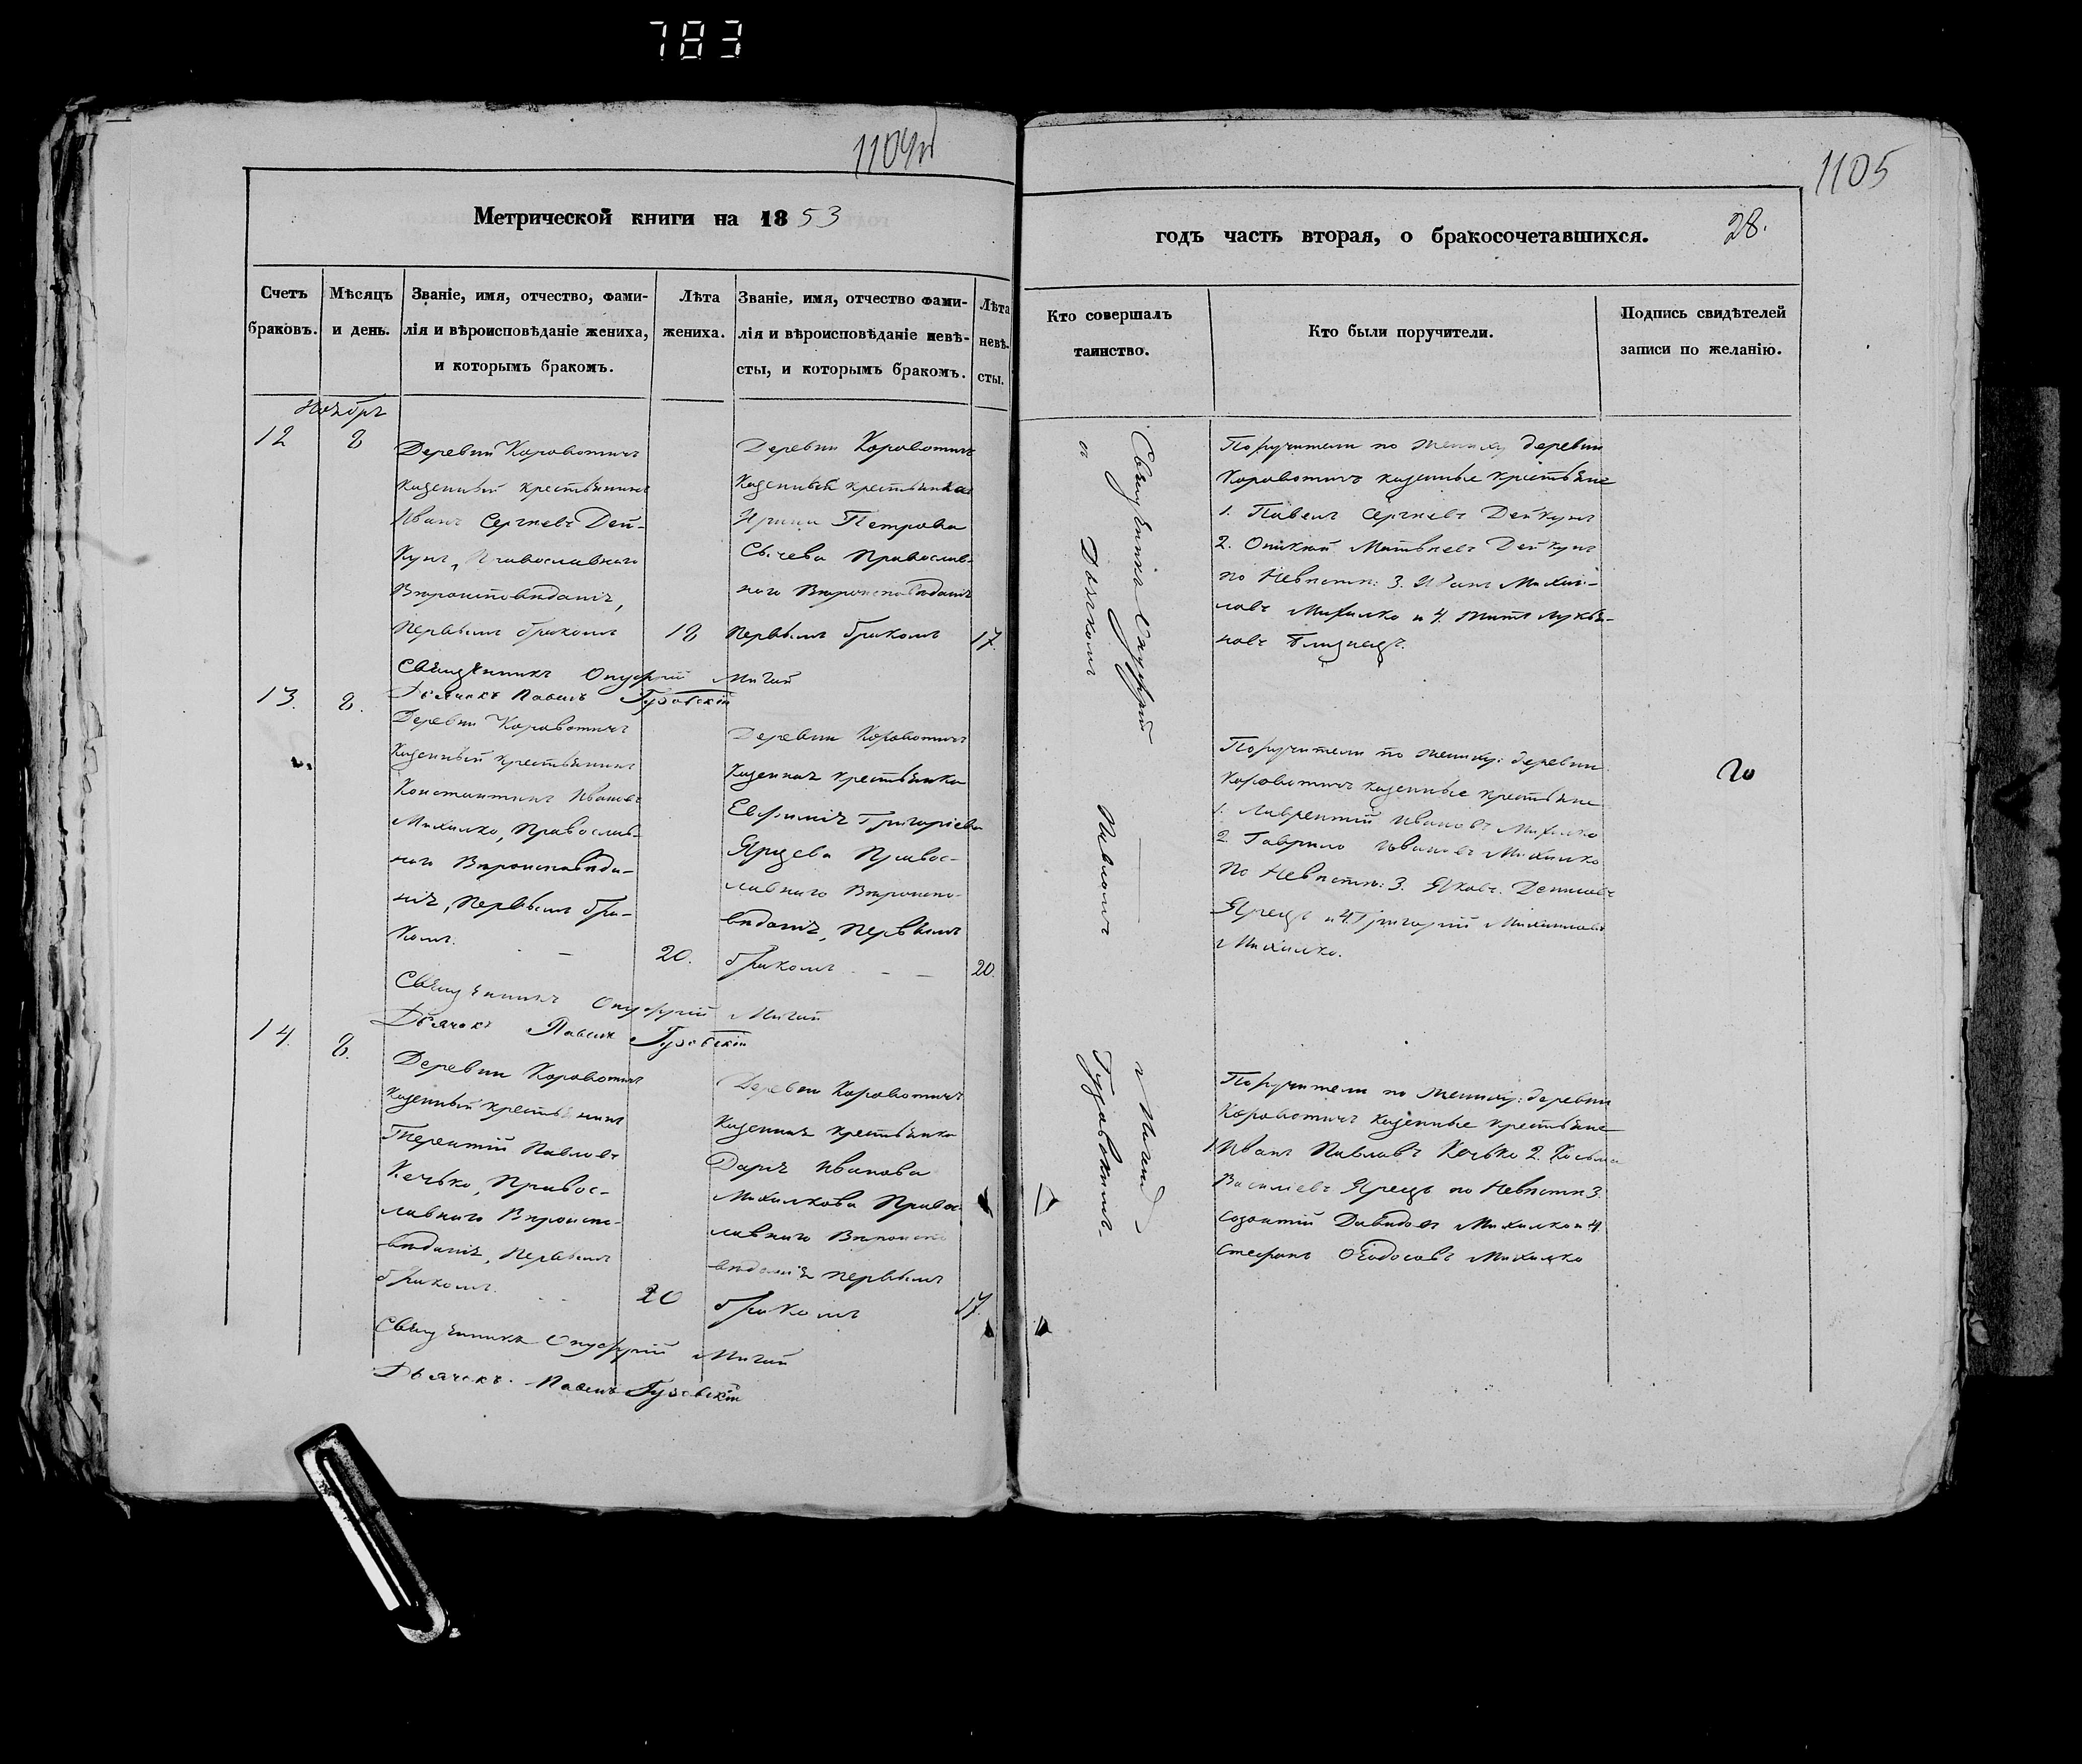 783
1105
Метрической книги на 1853
годъ часть вторая, о бракосочетавшихся. 28.
Счетъ браковъ.
Мѣсяцъ и день.
Званіе, имя, отчество, фами-
лія и вѣроисповѣданіе жениха,
и которымъ бракомъ.
Лѣта жениха.
Званіе, имя, отчество фами-
лія и вѣроисповѣданіе невѣ-
сты, и которымъ бракомъ.
Лѣта невѣ-
сты.
Кто совершалъ
таинство.
Кто были поручители.
Подпись свидѣтелей
записи по желанію.
Ноябрь
12
8
Деревни Коровотичъ
казенный крестьянинъ
Иванъ Сергѣевъ Дей-
кунъ, Православнаго
Вѣроисповѣданія,
первымъ бракомъ
18
Деревни Коровотичъ
Казенная крестьянка
Ирина Петрова
Сычева Православ-
наго Вѣроисповѣданія
первымъ бракомъ
17.
Священникъ Онуфрій Мигай
Дьячекъ Павелъ Гузовскій
Поручители по жениху деревни
Коровотичъ казенные крестьяне
1. Павелъ Сергѣевъ Дейкунъ
2. Матвѣевъ Дейкунъ
по Невѣстѣ: 3. Иванъ Михай-
ловъ Михалко и 4. Титъ Лукья-
новъ Близнецъ.
13.
8.
Деревни Коровотичъ
Казенный крестьянинъ
Константинъ Ивановъ
Михалко, Православ-
наго Вѣроисповѣда-
нія, первымъ бра-
комъ.
20.
Деревни Коровотичъ
Казенная крестьянка
Евфимія Григоріева
Ярцева Правос-
лавнаго Вѣроиспо-
вѣданія, первымъ
бракомъ
20.
Священникъ Онуфрій Мигай
Дьячокъ Павелъ Гузовскій
Поручители по жениху: деревни
Коровотичъ казенные крестьяне
1. Лаврентій Ивановъ Михалко
2. Гаврило Ивановъ Михалко
По Невѣстѣ: 3. Яковъ Денисовъ
Ярецъ и 4. Григорій
Михалко.
14.
8.
Деревни Коровотичъ
казенный крестьянинъ
Терентій Павловъ
Кечько, Правос-
лавнаго Вѣроиспо-
вѣданія, первымъ
бракомъ.
20
Деревни Коровотичъ
Казенная крестьянка
Дарія Иванова
Михалкова Правос-
лавнаго Вѣроиспо-
вѣданія первымъ
бракомъ
17.
Священникъ Онуфрій Мигай
Дьячекъ Павелъ Гузовскій
Поручители по жениху: деревни
Коровотичъ казенные крестьяне
1. Иванъ Павловъ Кечько 2. Косьма
Василіевъ Ярецъ по Невѣстѣ 3.
Созонтій Давидовъ Михалко и 4.
Стефанъ Ѳеодосовъ Михалко
Священникъ Онуфрій Мигай
и Дьячкомъ Павломъ Гузовскимъ.